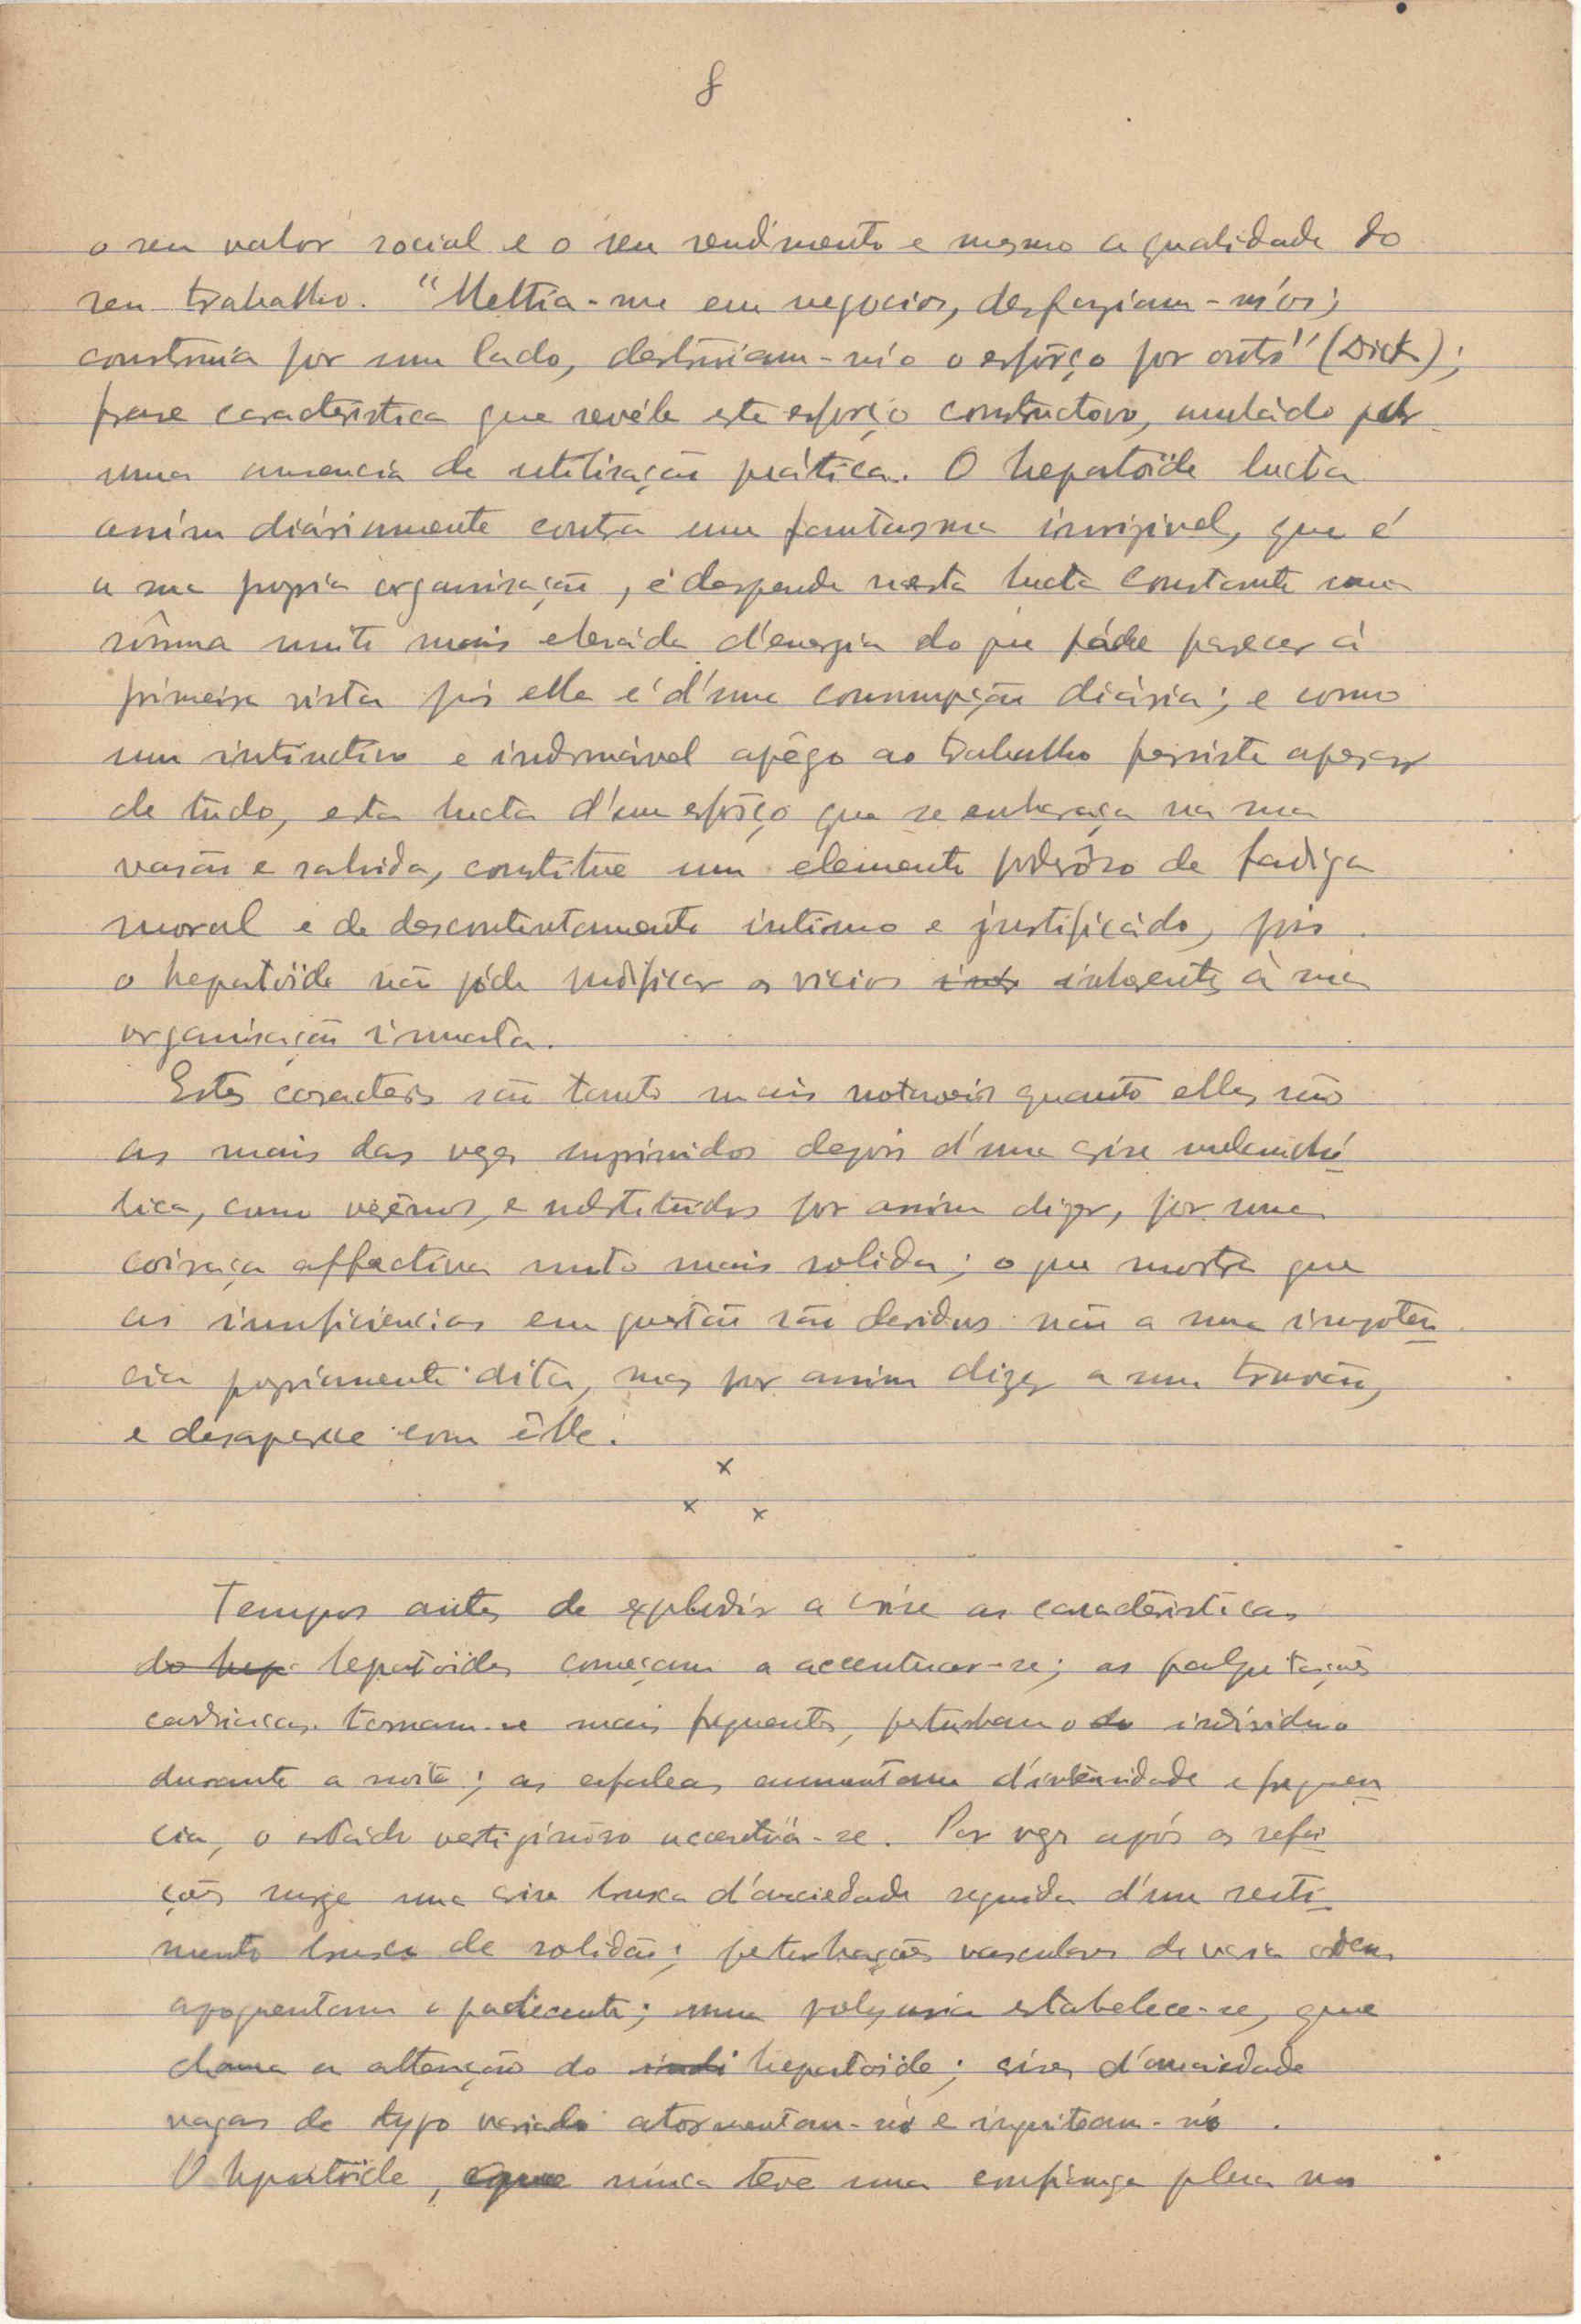 8
o seu valor social e o seu rendimento e mesmo a qualidade do
seu trabalho. "Mettia-me em negocios, desfaziam-m'os;
construia por um lado, destruiam-m'o o esfôrço por outro" (Dick);
frase caracteristica que revéla este esforço constructivo, anuládo por
uma ausencia de utilisação prática. O hepatoïde lucta
assim diáriamente contra um fantasma invizivel, que é
a sua propria organisação, e despende nesta lucta constante uma
sômma muito mais elevada d'energia do que póde parecer á
primeira vista pois ella é d'uma consumpção diária; e como
um intinctivo e indomável apêgo ao trabalho persiste apezar
de tudo, esta lucta d'um esfôrço que se embaraça na sua
vasão e sahida, constitue um elemento poderôso de fadiga
moral e de descontentamento intimo e justificádo, pois
o hepatoïde não póde modificar os vicios inherentes à sua
organisação innata.
Estes caracteres são tanto mais notaveis quanto elles são
as mais das vezes suprimidos depois d'uma crise melanchó
lica, como verêmos, e substituidos por assim dizer, por uma
coiraça affectiva muito mais solida; o que mostra que
as insuficiencias em questão são devidas não a uma impoten
cia propriamente dita, mas por assim dizer a um travão,
e desaparece com êlle.
x
x x
Tempos antes de explodir a crise as caracteristicas
do hep hepatoides começam a accentuar-se; as palpitações
cardiacas tornam-se mais frequentes, perturbam o do individuo
durante a noite; as cefaleas aumentam d'intensidade e frequen
cia, o estado vertiginôso accentúa-se. Por vezes após as refei
ções surge uma crise brusca d'anciedade seguida d'um senti
mento brusco de solidão; perturbações vasculares de varia ordem
apoquentam o padecente; uma polyuria estabelece-se, que
chama a attenção do indi hepatoide; crises d'anciedade
vagas de typo variado atormentam-n'o e inquietam-n'o.
O hepatoïde, que nunca teve uma confiança plena na